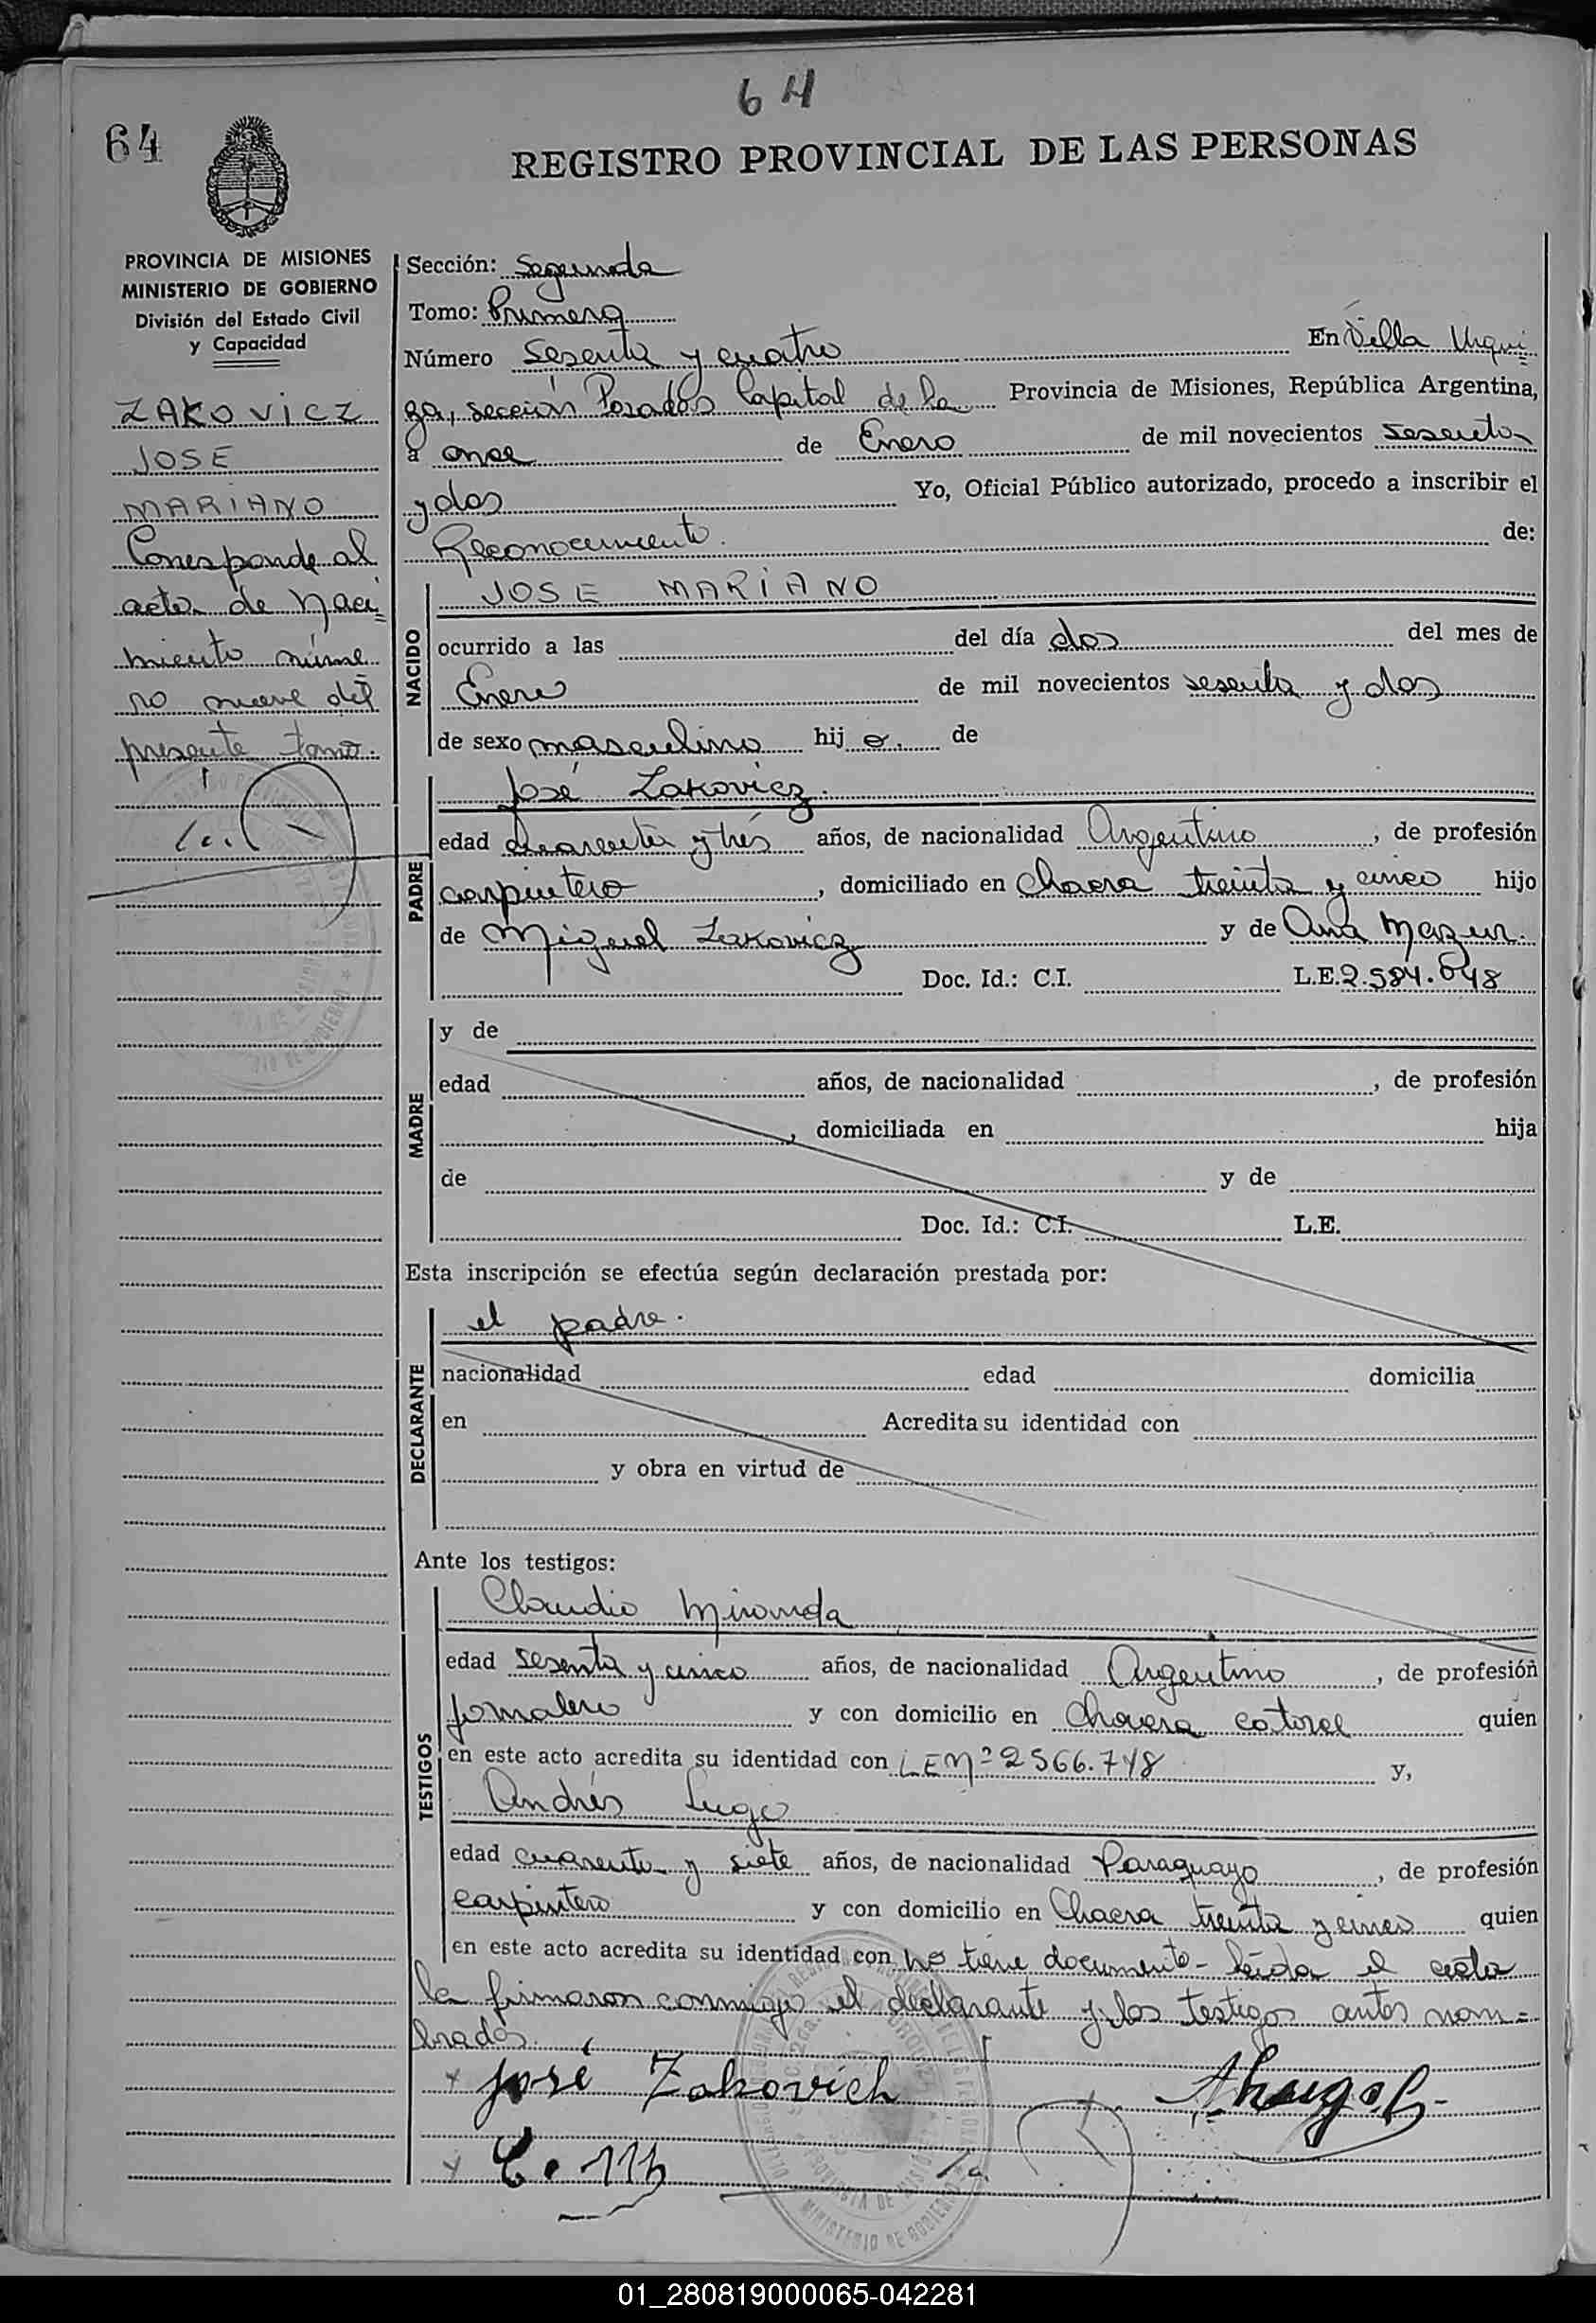 64
64
REGISTRO PROVINCIAL DE LAS PERSONAS
PROVINCIA DE MISIONES
MINISTERIO DE GOBIERNO
División del Estado Civil
y Capacidad
ZAKOVICZ
JOSE
MARIANO
Corresponde al
acta de Naci=
miento núme
ro nueve del
presente tomo.
Sección: Segunda
Tomo: Primero
Número Sesenta y cuatro En Villa Urqui=
za, sección Posadas Capital de la Provincia de Misiones, República Argentina,
a once de Enero de mil novecientos sesenta
y dos Yo, Oficial Público autorizado, procedo a inscribir el
Reconocimiento. de:
NACIDO
JOSE MARIANO
ocurrido a las del día dos del mes de
Enero de mil novecientos sesenta y dos
de sexo masculino hij o. de
PADRE
José Zakovicz.
edad cuarenta y tres años, de nacionalidad Argentino, de profesión
carpintero, domiciliado en Chacra treinta y cinco hijo
de Miguel Zakovicz y de Ana Mazur.
Doc. Id.: C.I. L.E. 2.584.648
MADRE
y de
edad años, de nacionalidad , de profesión
, domiciliada en hija
de y de
Doc. Id.: C.I. L.E.
Esta inscripción se efectúa según declaración prestada por:
DECLARANTE
el padre.
nacionalidad edad domicilia
en Acredita su identidad con
y obra en virtud de
Ante los testigos:
TESTIGOS
Claudio Miranda
edad sesenta y cinco años, de nacionalidad Argentino, de profesión
jornalero y con domicilio en Chacra catorce quien
en este acto acredita su identidad con LE Nº 2566.748 y,
Andrés Lugo
edad cuarenta y siete años, de nacionalidad Paraguayo, de profesión
carpintero y con domicilio en Chacra treinta y cinco quien
en este acto acredita su identidad con no tiene documento - leída el acta
la firmaron conmigo el declarante y los testigos antes nom=
brados.
x José Zakovich
x C. M
01_280819000065-042281